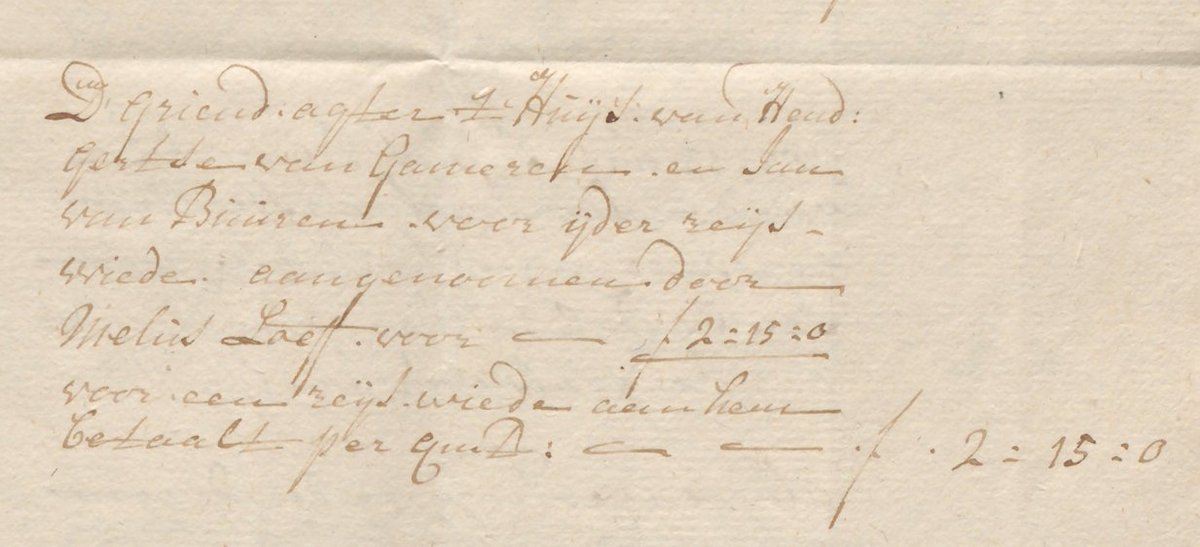 De Griend agter 't Huijs van Hend:
Gertse van Gameren en Jan
van Buuren voor ijder reijs
wiede aangenomen door
Melis Loeff voor — f 2=15=0
voor een reijs wiede aan hem
betaalt per quit: — — f 2=15=0